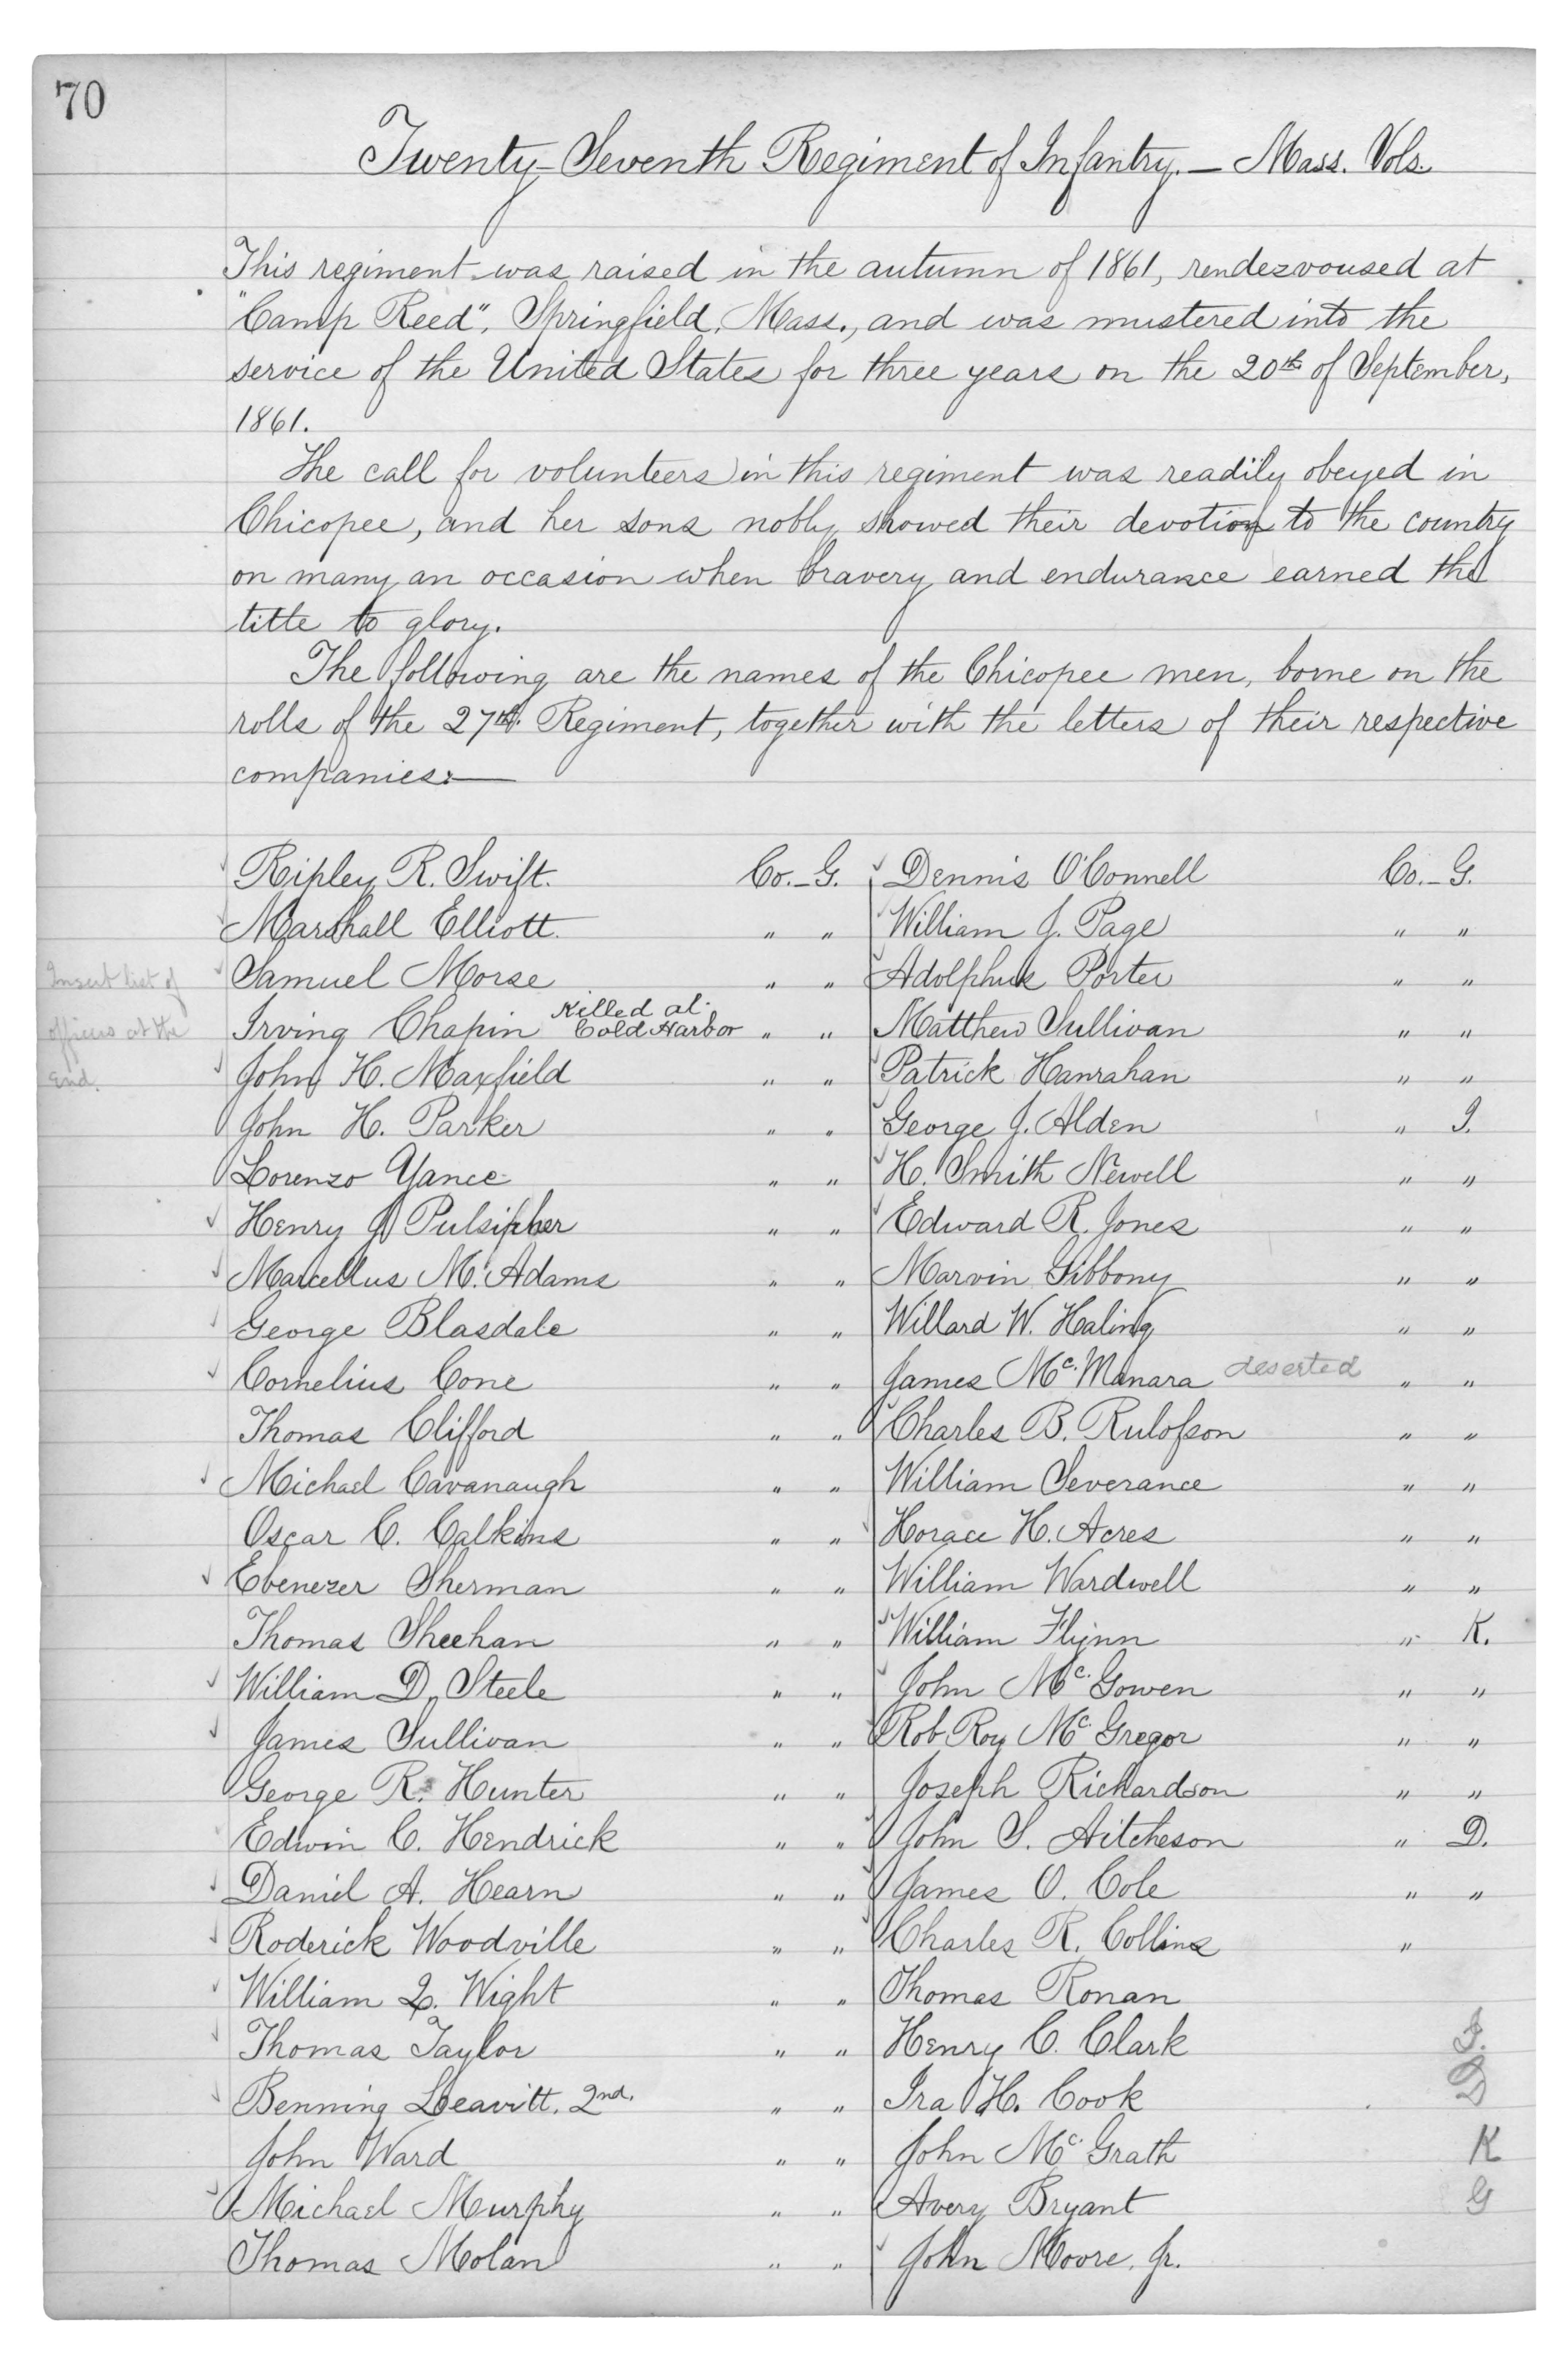 70
Twenty-Seventh Regiment of Infantry. — Mass. Vols.
This regiment was raised in the autumn of 1861, rendezvoused at
"Camp Reed", Springfield, Mass., and was mustered into the
service of the United States for three years on the 20th of September,
1861.
The call for volunteers in this regiment was readily obeyed in
Chicopee, and her sons nobly showed their devotion to the country
on many an occasion when bravery and endurance earned the
title to glory.
The following are the names of the Chicopee men, borne on the
rolls of the 27th. Regiment, together with the letters of their respective
companies:—
Insert list of
officers at the
end.
Ripley R. Swift. Co.—G.
Marshall Elliott. " "
Samuel Morse " "
Irving Chapin Killed at Cold Harbor " "
John H. Maxfield " "
John H. Parker " "
Lorenzo Vance " "
Henry J. Pulsipher " "
Marcellus M. Adams " "
George Blasdale " "
Cornelius Cone " "
Thomas Clifford " "
Michael Cavanaugh " "
Oscar C. Calkins " "
Ebenezer Sherman " "
Thomas Sheehan " "
William D. Steele " "
James Sullivan " "
George R. Hunter " "
Edwin C. Hendrick " "
Daniel A. Hearn " "
Roderick Woodville " "
William L. Wight " "
Thomas Taylor " "
Benning Leavitt, 2nd. " "
John Ward " "
Michael Murphy " "
Thomas Molan " "
Dennis O'Connell Co.—G.
William J. Page " "
Adolphus Porter " "
Matthew Sullivan " "
Patrick Hanrahan " "
George J. Alden " I.
H. Smith Newell " "
Edward R. Jones " "
Marvin Gibbony " "
Willard W. Haling " "
James Mc. Manara deserted " "
Charles B. Rulofson " "
William Severance " "
Horace H. Acres " "
William Wardwell " "
William Flynn " K.
John Mc. Gowen " "
Rob Roy Mc. Gregor " "
Joseph Richardson " "
John S. Aitcheson " D.
James O. Cole " "
Charles R. Collins "
Thomas Ronan
Henry C. Clark
Ira H. Cook D
John Mc. Grath K
Avery Bryant G
John Moore, Jr.